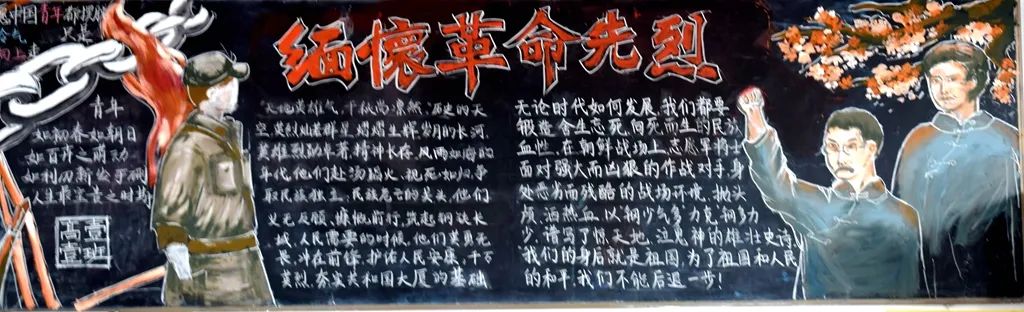 中国青年都摆脱
冷气，只是
向上走
青年
如初春如朝日
如百卉之萌动
如利刃新发于硎
人生最宝贵之时期
高壹
壹班
缅懷革命先烈
"天地英雄气，千秋尚凛然。"历史的天
空英烈灿若群星，熠熠生辉，岁月的长河，
英雄烈勋卓著，精神长存。风雨如晦的
年代，他们赴汤蹈火，视死如归，争
取民族独立；民族危亡的关头，他们
义无反顾，慷慨前行，筑起钢铁长
城，人民需要的时候，他们英勇无
畏，冲在前锋，护佑人民安康，千万
英烈，夯实共和国大厦的基础
无论时代如何发展，我们都要
锻造舍生忘死、向死而生的民族
血性。在朝鲜战场上志愿军将士
面对强大而凶狠的作战对手，身
处恶劣而残酷的战场环境，抛头
颅，洒热血，以钢少气多力克钢多力
少，谱写了惊天地、泣鬼神的雄壮史诗
我们的身后就是祖国，为了祖国和人民
的和平，我们不能后退一步！